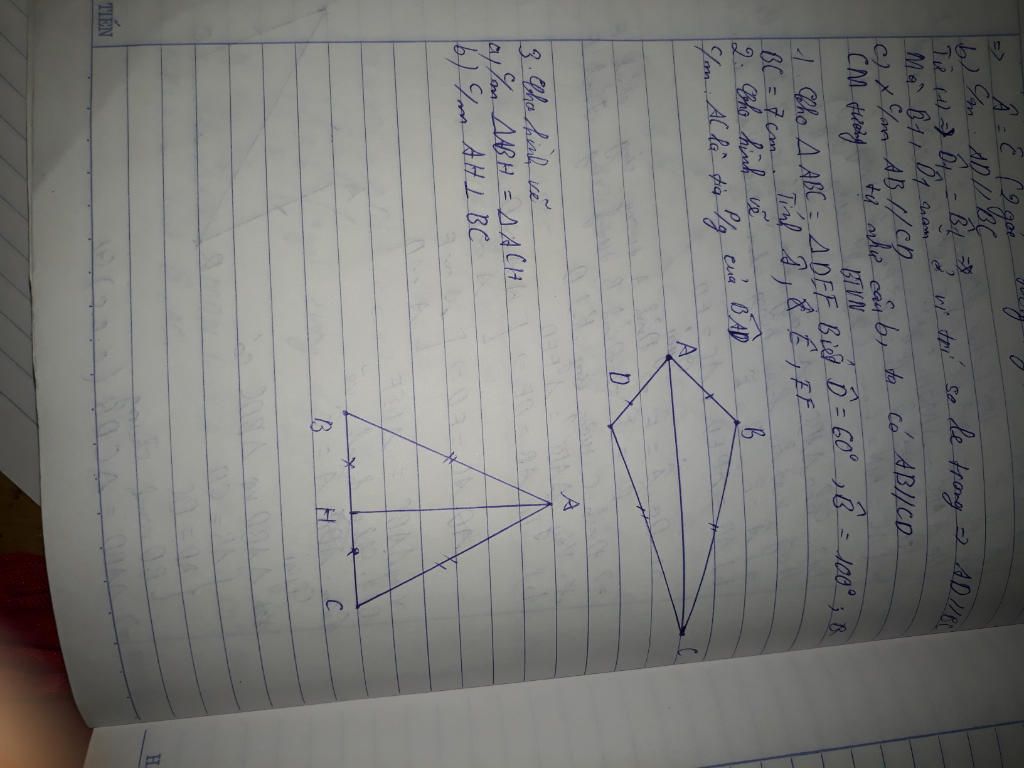 ⇒ Â = Ĉ (2 góc
b) C/m: AD//BC
Từ (1) ⇒ D̂1 = B̂1 ⇒
Mà D̂1, B̂1 nằm ở vị trí so le trong ⇒ AD//BC
c) x C/m AB//CD
CM tương tự như câu b, ta có AB//CD
BTVN
1. Cho Δ ABC = Δ DEF Biết D̂ = 60°, B̂ = 100°; B
BC = 7cm. Tính Â, Ê, EF
2. Cho hình vẽ
C/m: AC là tia p/g của BÂD
A
B
D
C
3. Cho hình vẽ
a) C/m ΔABH = ΔACH
b) C/m AH⊥BC
A
B
H
C
TIẾN
H